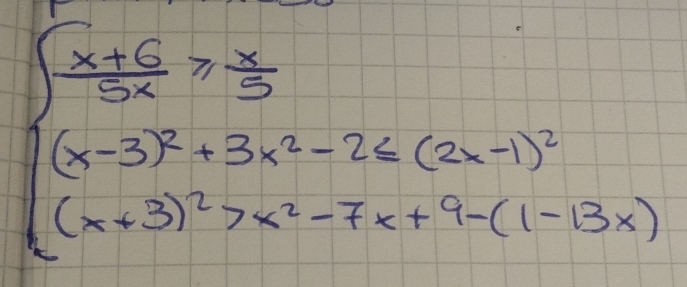 x+6/5x ⩾ x/5
(x-3)² + 3x² - 2 ≤ (2x-1)²
(x+3)² > x² - 7x + 9 - (1 - 13x)